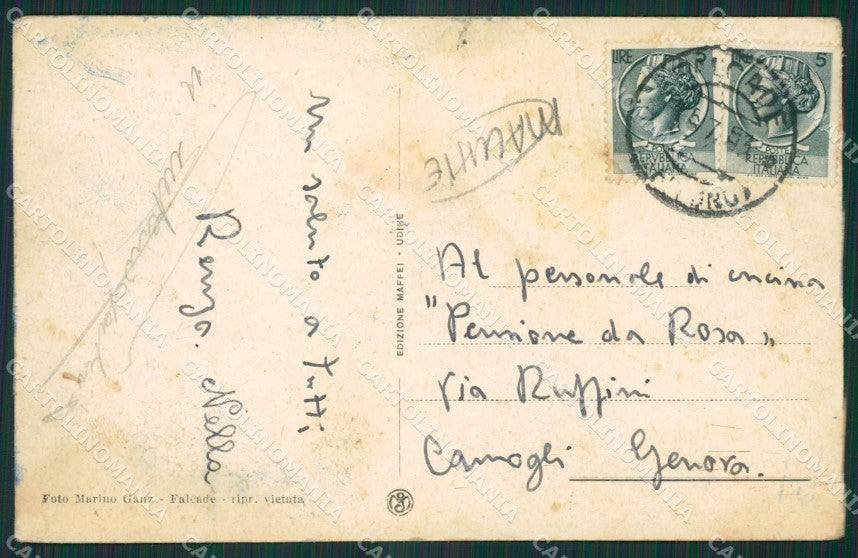 un saluto a tutti
Renzo. Nella
MACULIE
Al personale di cucina
"Pensione da Rosa"
Via Ruffini
Camogli Genova.
LIRE
5
REPVBBLICA
ITALIANA
REPVBBLICA
ITALIANA
EDIZIONE MAFFEI - UDINE
Foto Marino Ganz - Falcade - ripr. vietata
CARTOLINOMANIA